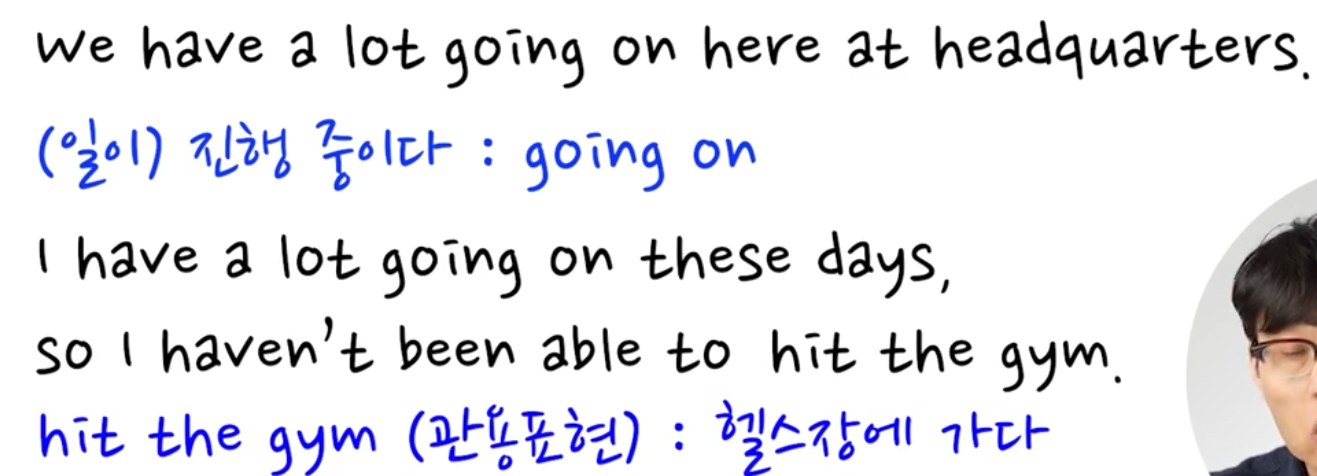 we have a lot going on here at headquarters.
(일이) 진행 중이다 : going on
I have a lot going on these days,
so I haven't been able to hit the gym.
hit the gym (관용표현) : 헬스장에 가다